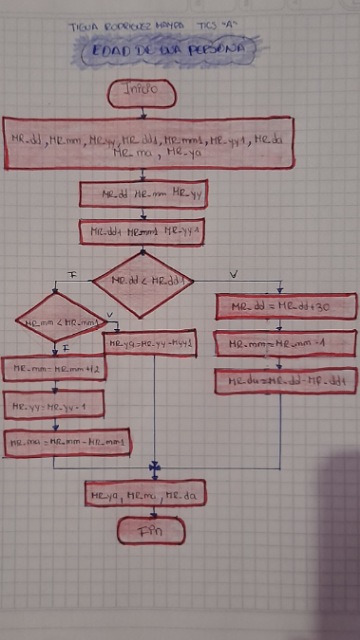 TIGUA RODRIGUEZ MAYRA TICS "A"
EDAD DE UNA PERSONA
Inicio
MR_dd, MR_mm, MR_yy, MR_dd1, MR_mm1, MR_yy1, MR_da
MR_ma, MR_ya
MR_dd MR_mm MR_yy
MR_dd1 MR_mm1 MR_yy1
MR_dd < MR_dd1
F
V
MR_mm < MR_mm1
V
F
MR_dd = MR_dd+30
MR_ya=MR_yy-Myy1
MR_mm=MR_mm-1
MR_mm=MR_mm+12
MR_da=MR_dd-MR_dd1
MR_yy=MR_yy-1
MR_ma=MR_mm-MR_mm1
MR_ya, MR_ma, MR_da
Fin